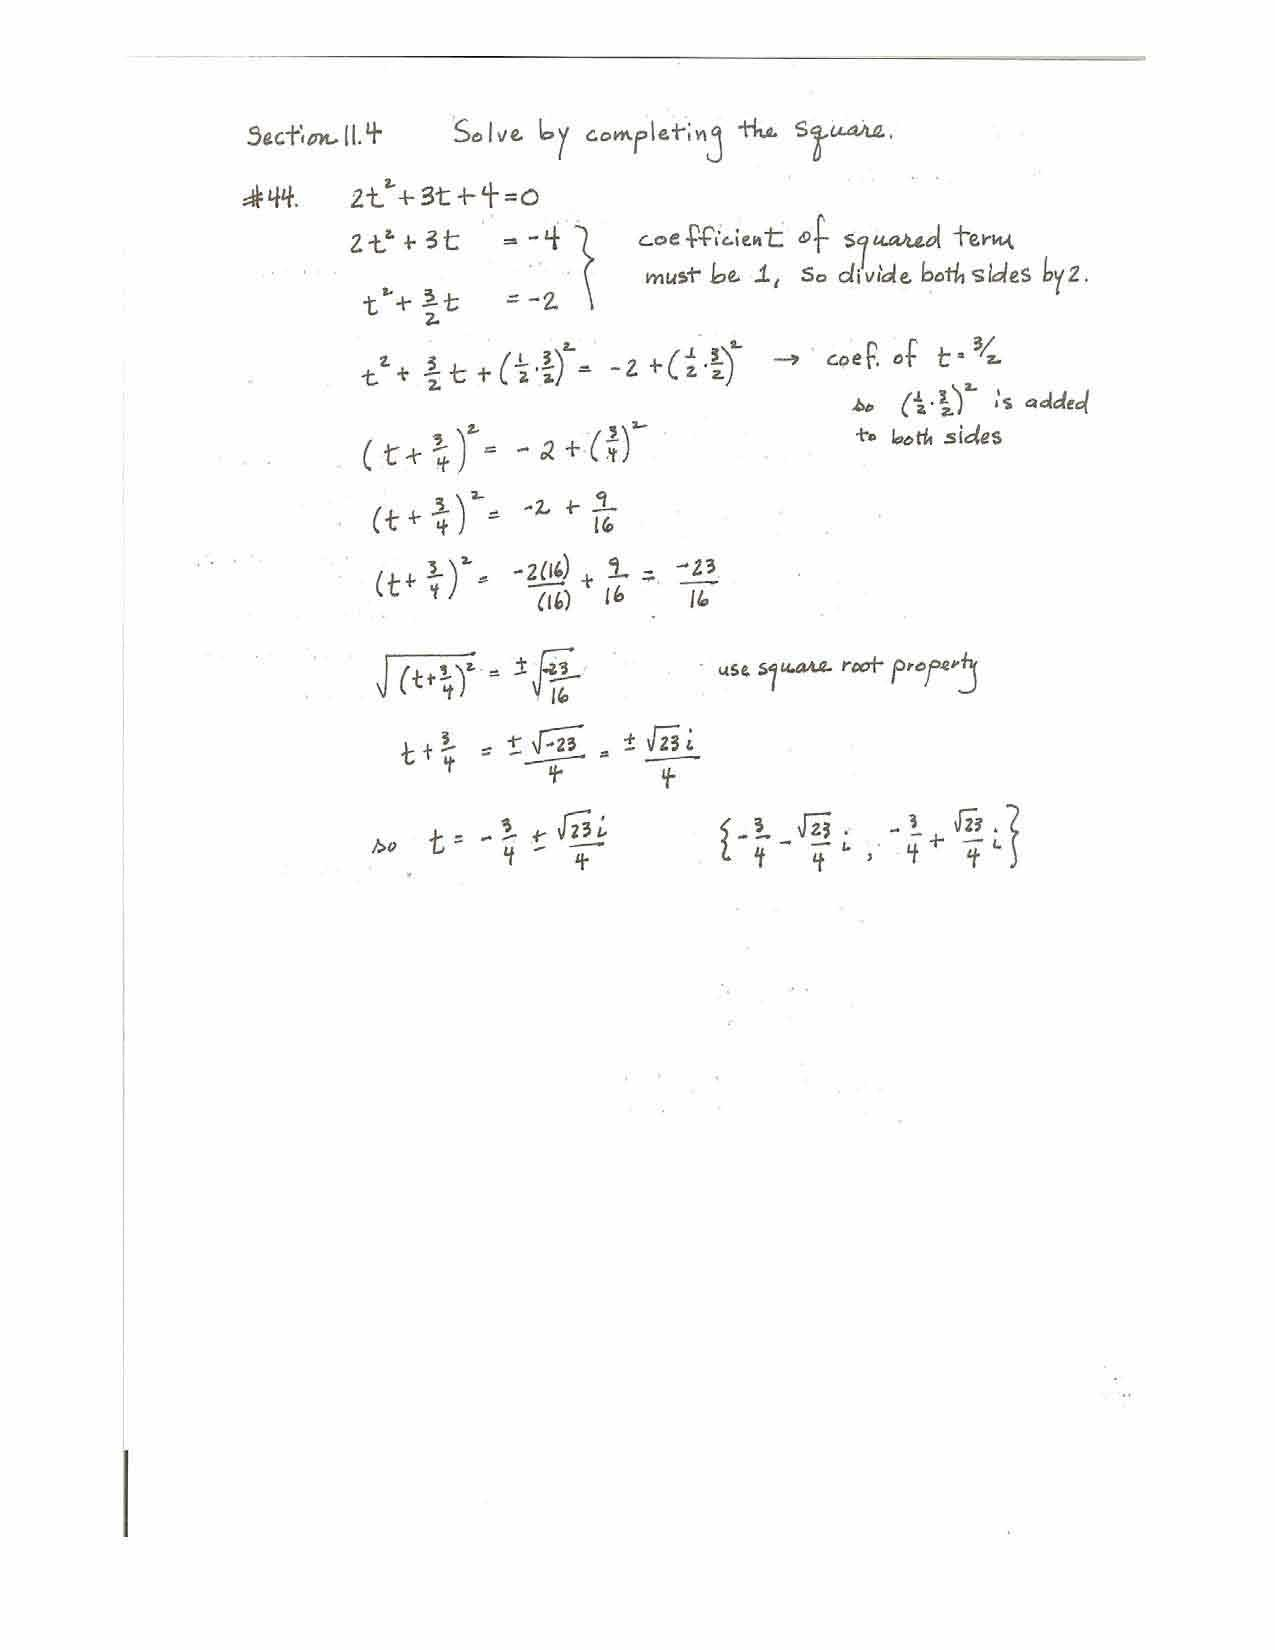 Section 11.4 Solve by completing the square.
#44. 2t² + 3t + 4 = 0
2t² + 3t = -4 } coefficient of squared term
must be 1, so divide both sides by 2.
t² + 3/2 t = -2
t² + 3/2 t + (1/2 · 3/2)² = -2 + (1/2 · 3/2)² → coef. of t = 3/2
so (1/2 · 3/2)² is added
to both sides
(t + 3/4)² = -2 + (3/4)²
(t + 3/4)² = -2 + 9/16
(t + 3/4)² = -2(16)/(16) + 9/16 = -23/16
√(t + 3/4)² = ± √-23/16 use square root property
t + 3/4 = ± √-23/4 = ± √23 i/4
so t = - 3/4 ± √23 i/4 {- 3/4 - √23/4 i, - 3/4 + √23/4 i}